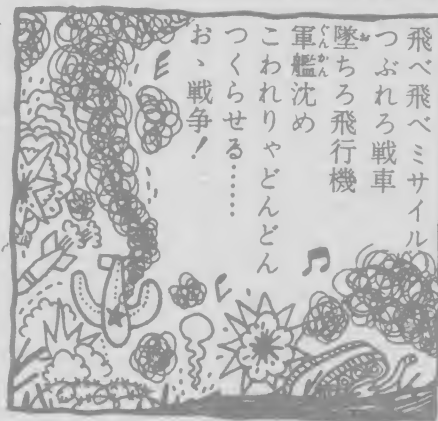 飛べ飛べミサイル
つぶれろ戦車
墜ちろ飛行機
軍艦沈め
こわれりゃどんどん
つくらせる……
おゝ戦争!